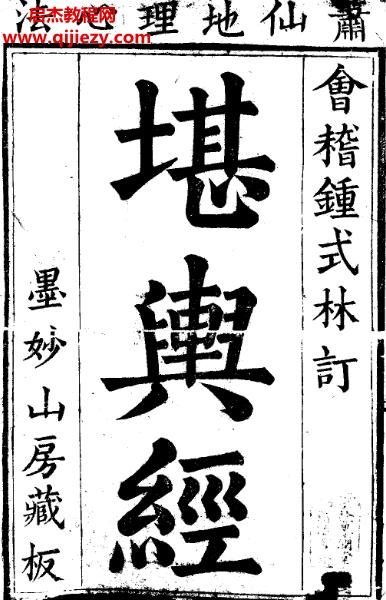 蕭仙地理法
會稽鍾式林訂
堪輿經
墨妙山房藏板
启杰教程网
www.qijiezy.com